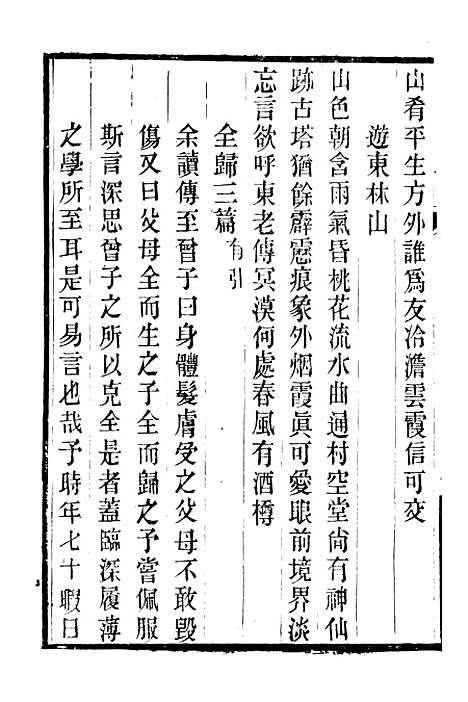 山肴平生方外誰爲友冾澹雲霞信可交
遊東林山
山色朝含雨氣昏桃花流水曲通村空堂尙有神仙
跡古塔猶餘霹靂痕象外烟霞眞可愛眼前境界淡
忘言欲呼東老傳冥漠何處春風有酒樽
全歸三篇有引
余讀傳至曾子曰身體髮膚受之父母不敢毀
傷又曰父母全而生之子全而歸之予嘗佩服
斯言深思曾子之所以克全是者蓋臨深履薄
之學所至耳是可易言也哉予時年七十暇日